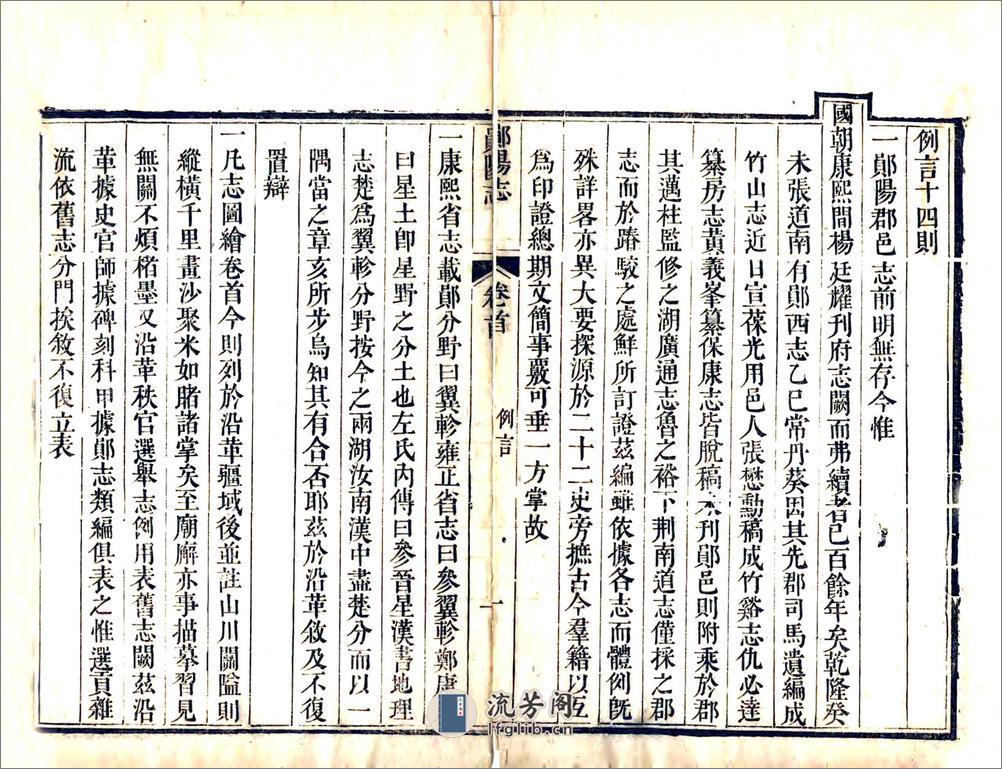 例言十四則
一鄖陽郡邑志前明無存今惟
國朝康熙間楊廷耀刊府志闕而弗續者已百餘年矣乾隆癸
未張道南有鄖西志乙巳常丹葵因其先郡司馬遺編成
竹山志近日宣葆光用邑人張懋勳稿成竹谿志仇必達
纂房志黃義峯纂保康志皆脫稿未刊鄖邑則附乘於郡
其邁柱監修之湖廣通志魯之裕下荆南道志僅採之郡
志而於踳駮之處鮮所訂證茲編雖依據各志而體例旣
殊詳畧亦異大要探源於二十二史旁摭古今羣籍以互
爲印證總期文簡事覈可垂一方掌故
鄖陽志
卷首
例言
一
一康熙省志載鄖分野曰翼軫雍正省志曰參翼軫鄭康
曰星土卽星野之分土也左氏內傳曰參晉星漢書地理
志楚爲翼軫分野按今之兩湖汝南漢中盡楚分而以一
隅當之章亥所步烏知其有合否耶茲於沿革敘及不復
置辯
一凡志圖繪卷首今則列於沿革疆域後並註山川關隘則
縱橫千里畫沙聚米如睹諸掌矣至廟廨亦事描摹習見
無關不煩楮墨又沿革秩官選舉志例用表舊志闕茲沿
革據史官師據碑刻科甲據鄖志類編俱表之惟選貢雜
流依舊志分門挨敘不復立表
流芳阁
lfglib.cn